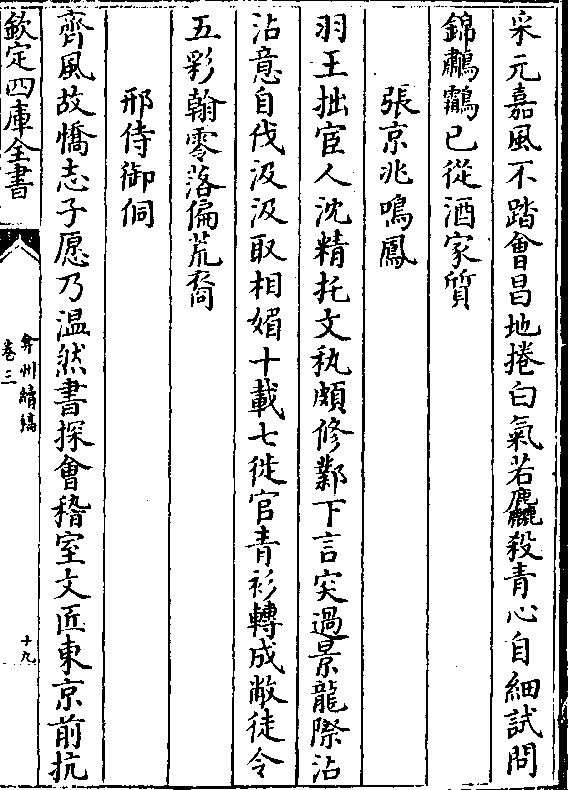 采元嘉風不踏會昌地捲白氣若麤殺青心自細試問
錦鷫鸘已從酒家質
張京兆鳴鳳
羽王拙宦人沈精托文秇頗修鄴下言突過景龍際沾
沾意自伐汲汲取相媚十載七徙官青衫轉成敝徒令
五彩翰零落偏荒裔
邢侍御侗
齊風故憍志子愿乃温然書探會稽室文匠東京前抗
欽定四庫全書
弇州續稿
卷三
十九